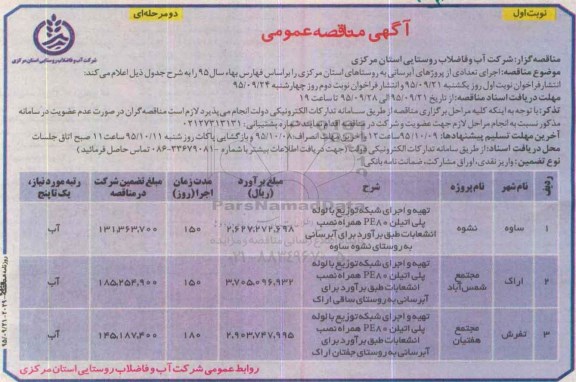 نوبت اول
دو مرحله‌ای
آگهی مناقصه عمومی
شرکت آب و فاضلاب روستایی استان مرکزی
مناقصه گزار: شرکت آب و فاضلاب روستایی استان مرکزی
موضوع مناقصه: اجرای تعدادی از پروژهای آبرسانی به روستاهای استان مرکزی را بر اساس فهارس بهاء سال ۹۵ را به شرح جدول ذیل اعلام می‌کند:
انتشار فراخوان نوبت اول روز یکشنبه ۹۵/۰۹/۲۱ و انتشار فراخوان نوبت دوم روز چهارشنبه ۹۵/۰۹/۲۴
مهلت دریافت اسناد مناقصه: از تاریخ ۹۵/۰۹/۲۱ الی ۹۵/۰۹/۲۸ تا ساعت ۱۹
تذکر: با توجه به اینکه کلیه مراحل برگزاری مناقصه از طریق سامانه تدارکات الکترونیکی دولت انجام می‌پذیرد لازم است مناقصه‌گران در صورت عدم عضویت در سامانه
مذکور نسبت به انجام مراحل لازم جهت عضویت و شرکت در مناقصه اقدام نمایند شماره پشتیبانی: ۰۲۱۲۷۳۱۳۱۳۱
آخرین مهلت تسلیم پیشنهادها: ۹۵/۱۰/۰۹ ساعت ۱۲ و آخرین مهلت انصراف ۹۵/۱۰/۰۸ و بازگشایی پاکات روز شنبه ۹۵/۱۰/۱۱ ساعت ۱۱ صبح اتاق جلسات
محل دریافت اسناد: از طریق سامانه تدارکات الکترونیکی دولت (جهت دریافت اطلاعات بیشتر با شماره ۳۳۶۷۹۰۸۱-۰۸۶ تماس حاصل فرمائید)
نوع تضمین: واریز نقدی، اوراق مشارکت، ضمانت نامه بانکی
ردیف نام شهر نام پروژه شرح مبلغ برآورد (ریال) مدت زمان اجرا (روز) مبلغ تضمین شرکت در مناقصه رتبه مورد نیاز، یک تا پنج
۱ ساوه نشوه تهیه و اجرای شبکه توزیع با لوله پلی اتیلن PE80 همراه نصب انشعابات طبق برآورد برای آبرسانی به روستای نشوه ساوه ۲,۶۲۷,۲۷۲,۶۹۸ ۱۵۰ ۱۳۱,۳۶۳,۷۰۰ آب
۲ اراک مجتمع شمس‌آباد تهیه و اجرای شبکه توزیع با لوله پلی اتیلن PE80 همراه نصب انشعابات طبق برآورد برای آبرسانی به روستای ساقی اراک ۳,۷۰۵,۰۹۶,۹۳۲ ۱۵۰ ۱۸۵,۲۵۴,۹۰۰ آب
۳ تفرش مجتمع هفتیان تهیه و اجرای شبکه توزیع با لوله پلی اتیلن PE80 همراه نصب انشعابات طبق برآورد برای آبرسانی به روستای جفتان اراک ۲,۹۰۳,۷۴۷,۹۹۵ ۱۸۰ ۱۴۵,۱۸۷,۴۰۰ آب
روابط عمومی شرکت آب و فاضلاب روستایی استان مرکزی
ParsNamadData